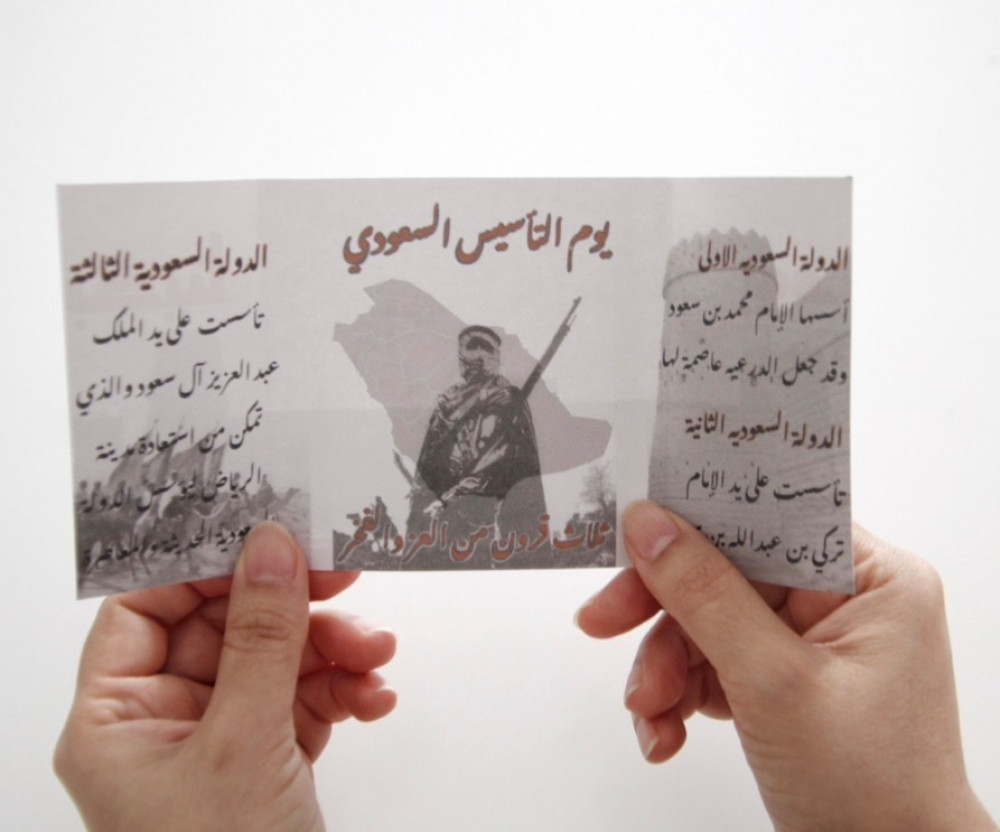 يوم التأسيس السعودي
الدولة السعوديه الاولى
أسسها الإمام محمد بن سعود
وقد جعل الدرعيه عاصمة لها
الدولة السعوديه الثانية
تأسست على يد الإمام
تركي بن عبدالله بن
الدولة السعودية الثالثة
تأسست على يد الملك
عبد العزيز آل سعود والذي
تمكن من استعادة مدينة
الرياض ليؤسس الدولة
الحديثة والمعاصرة
ثلاث قرون من العز والفخر